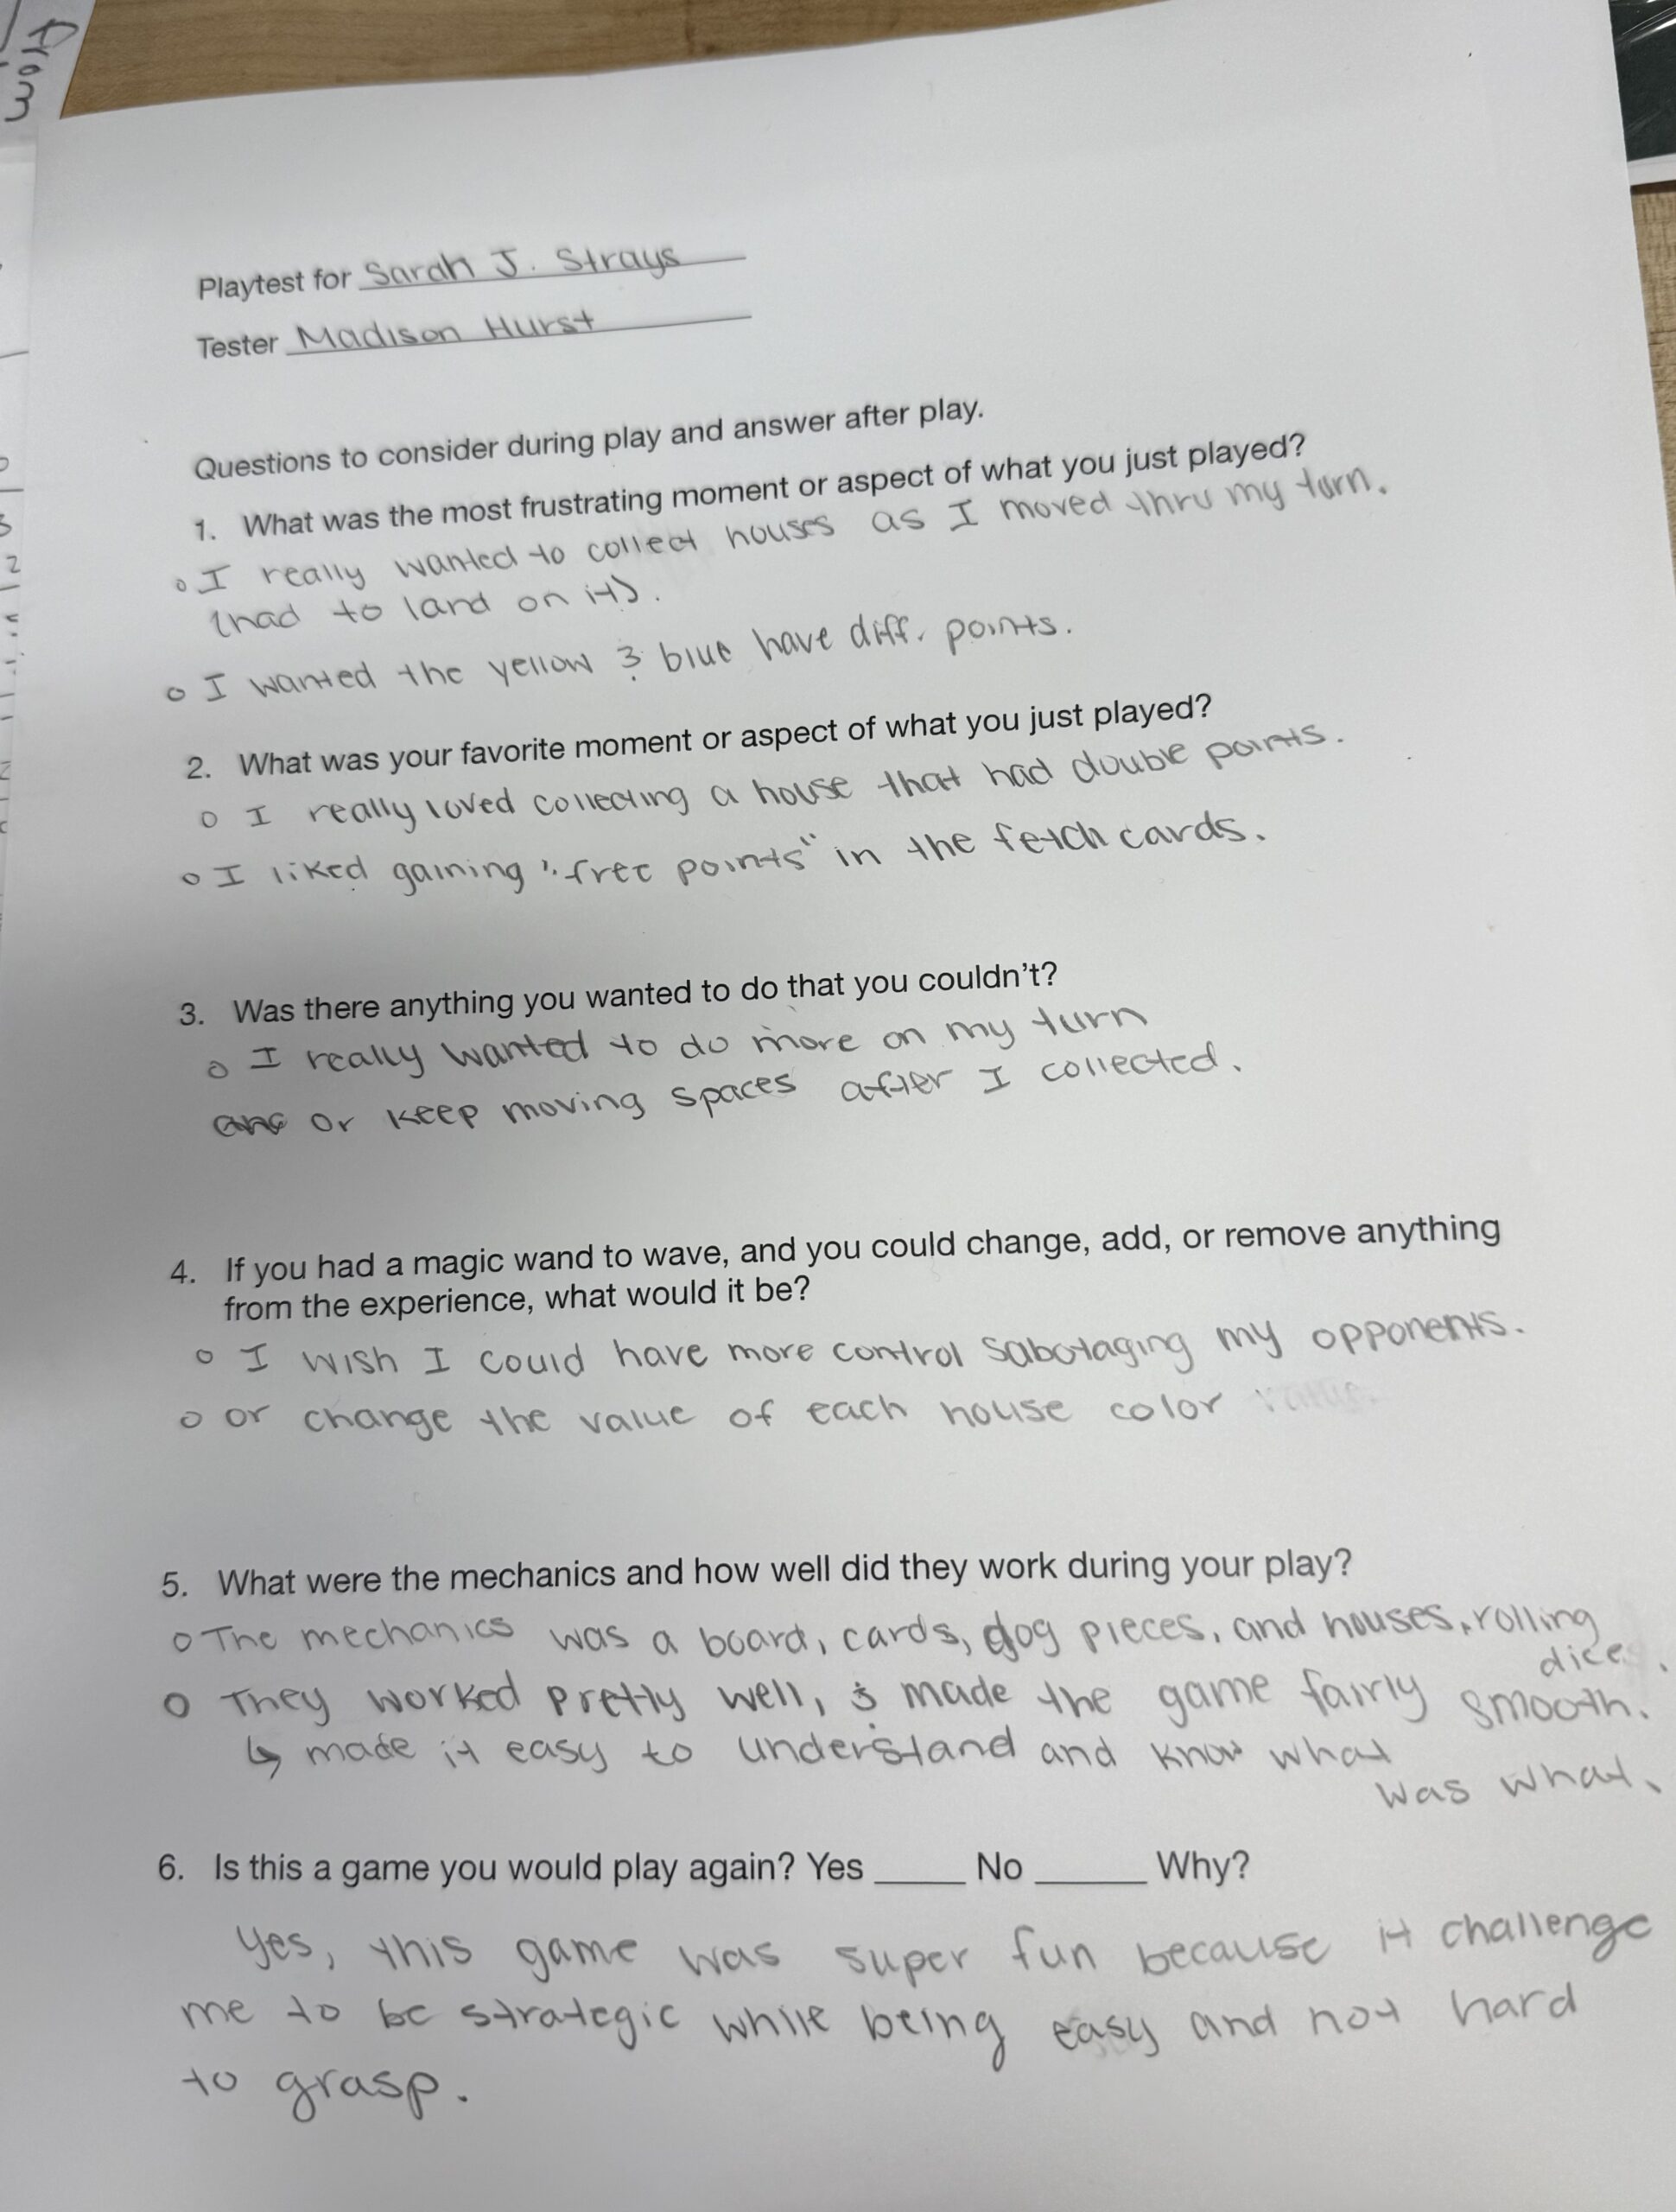 from
Playtest for Sarah J. Strays
Tester Madison Hurst
Questions to consider during play and answer after play.
1. What was the most frustrating moment or aspect of what you just played?
o I really wanted to collect houses as I moved thru my turn.
(had to land on it).
o I wanted the yellow & blue have diff. points.
2. What was your favorite moment or aspect of what you just played?
o I really loved collecting a house that had double points.
o I liked gaining "free points" in the fetch cards.
3. Was there anything you wanted to do that you couldn't?
o I really wanted to do more on my turn
or keep moving spaces after I collected.
4. If you had a magic wand to wave, and you could change, add, or remove anything
from the experience, what would it be?
o I wish I could have more control sabotaging my opponents.
o or change the value of each house color
5. What were the mechanics and how well did they work during your play?
o The mechanics was a board, cards, dog pieces, and houses, rolling
dice.
o They worked pretty well, & made the game fairly smooth.
↳ made it easy to understand and know what
was what.
6. Is this a game you would play again? Yes _____ No ______ Why?
Yes, this game was super fun because it challenge
me to be strategic while being easy and not hard
to grasp.